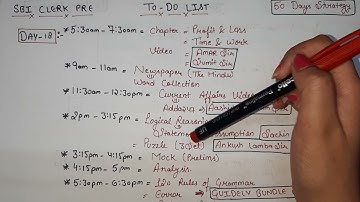 SBI CLERK PRE TO-DO LIST 50 Days Strategy
DAY-18
* 5:30am - 7:30am = Chapter = Profit & Loss
= Time & Work
Video = AMAR Sir
Sumit Sir
* 9am - 11am = Newspaper (The Hindu)
Word Collection
* 11:30am - 12:30pm = Current Affairs Video
Adda247
* 2pm - 3:15pm = Logical Reasoning
Statement
Puzzle (3 Set) Ankush Lamba Sir
* 3:15pm - 4:15pm = Mock (Prelims)
* 4:15pm - 5pm = Analysis
* 5:30pm - 6:30pm = 120 Rules of Grammar
Error GUIDELY BUNDLE